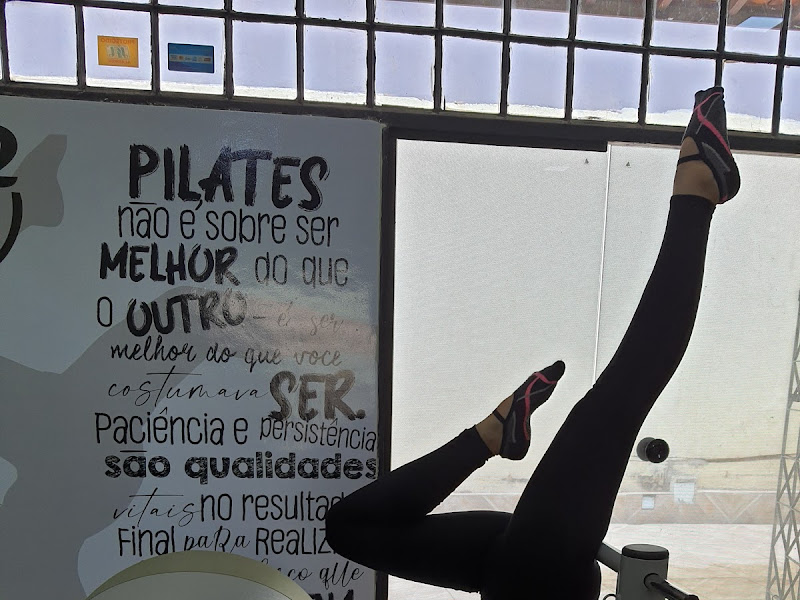 PILATES
não é sobre ser
MELHOR do que
o OUTRO - é ser
melhor do que você
costumava SER.
Paciência e persistência
são qualidades
vitais no resultad
Final para REALIZ
que